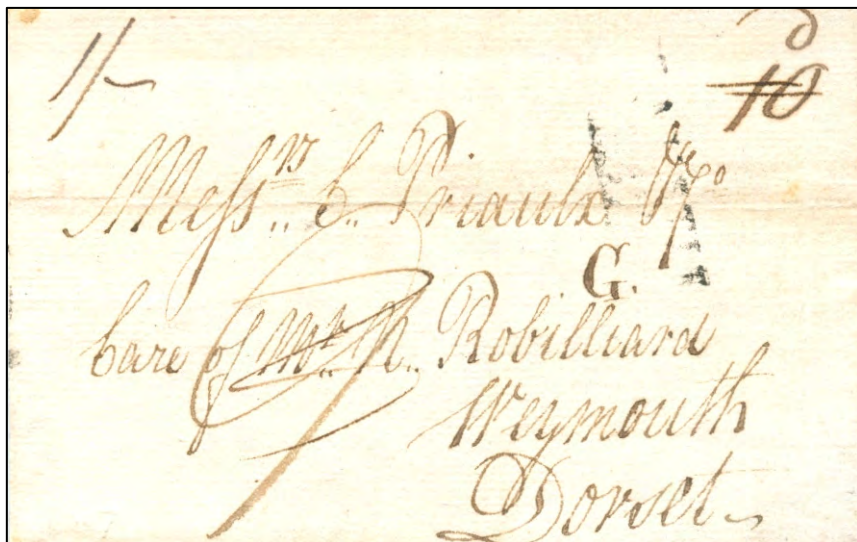 1/-
d
10
Messrs.. C.. Priaulx & Co
G.
Care of Mr.. N.. Robilliard
Weymouth
Dorset